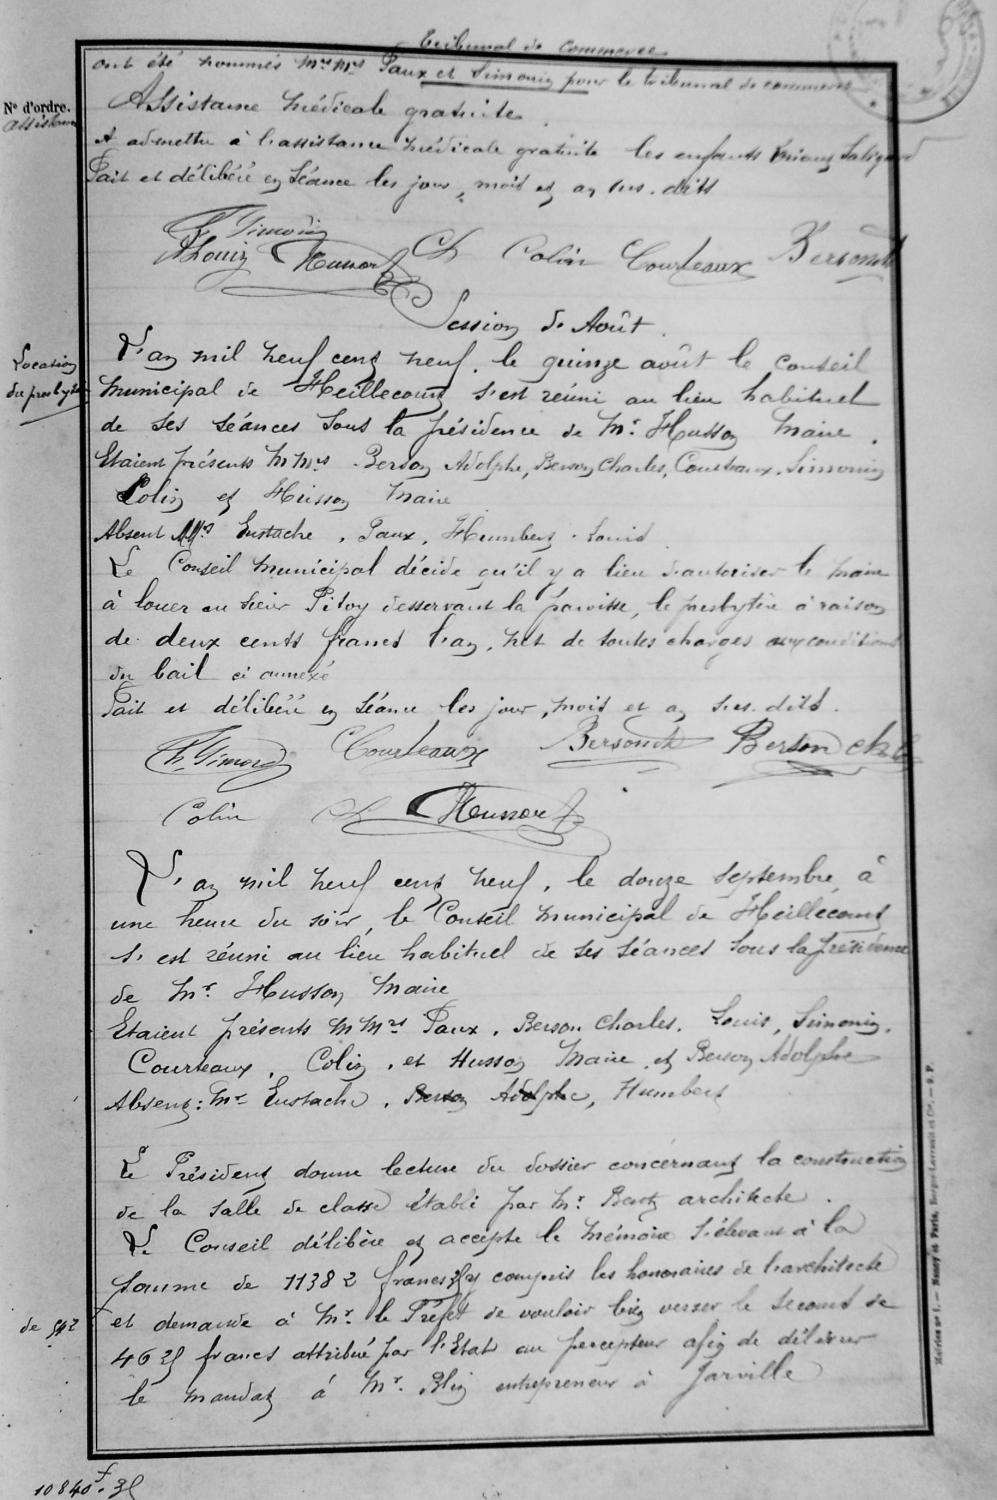 Tribunal de Commerce
ont été nommés Mrs Mrs Paux et Simonin pour le tribunal de commerce
N° d'ordre.
Assistance médicale gratuite
A admettre à l'assistance médicale gratuite les enfants
Fait et délibéré en séance les jour, mois et an sus-dits
Simonin
Louis Husson Ch Colin Courteaux Berson
Session de Août.
Location
du presbytère
L'an mil neuf cent neuf, le quinze août le Conseil
municipal de Heillecourt s'est réuni au lieu habituel
de ses séances sous la présidence de Mr Husson Maire.
Etaient présents MMrs Berson Adolphe, Berson Charles, Courteaux, Simonin
Colin et Husson Maire
Absent MMrs Eustache, Paux, Humbert, Louis
Le Conseil municipal décide qu'il y a lieu d'autoriser le maire
à louer au sieur Pitoy desservant la paroisse, le presbytère à raison
de deux cents francs l'an, net de toutes charges aux conditions
du bail ci annexé
Fait et délibéré en séance les jour, mois et an sus-dits.
Simonin Courteaux Berson Berson Ch
Colin Ch Husson
L'an mil neuf cent neuf, le douze septembre, à
une heure du soir, le Conseil municipal de Heillecourt
s'est réuni au lieu habituel de ses séances sous la présidence
de Mr Husson Maire
Etaient présents MMrs Paux, Berson Charles, Louis, Simonin,
Courteaux, Colin, et Husson Maire et Berson Adolphe
Absent: Mr Eustache, Berson Adolphe, Humbert
Le Président donne lecture du dossier concernant la construction
de la salle de classe établi par Mr architecte.
Le Conseil délibère et accepte le mémoire s'élevant à la
somme de 11382 francs 35 y compris les honoraires de l'architecte
et demande à Mr le Préfet de vouloir bien verser le secours de
4635 francs attribué par l'Etat au percepteur afin de délivrer
le mandat à Mr Blin entrepreneur à Jarville
de 542
10840f.35
Nancy et Paris, Berger-Levrault et Cie. — S. P.